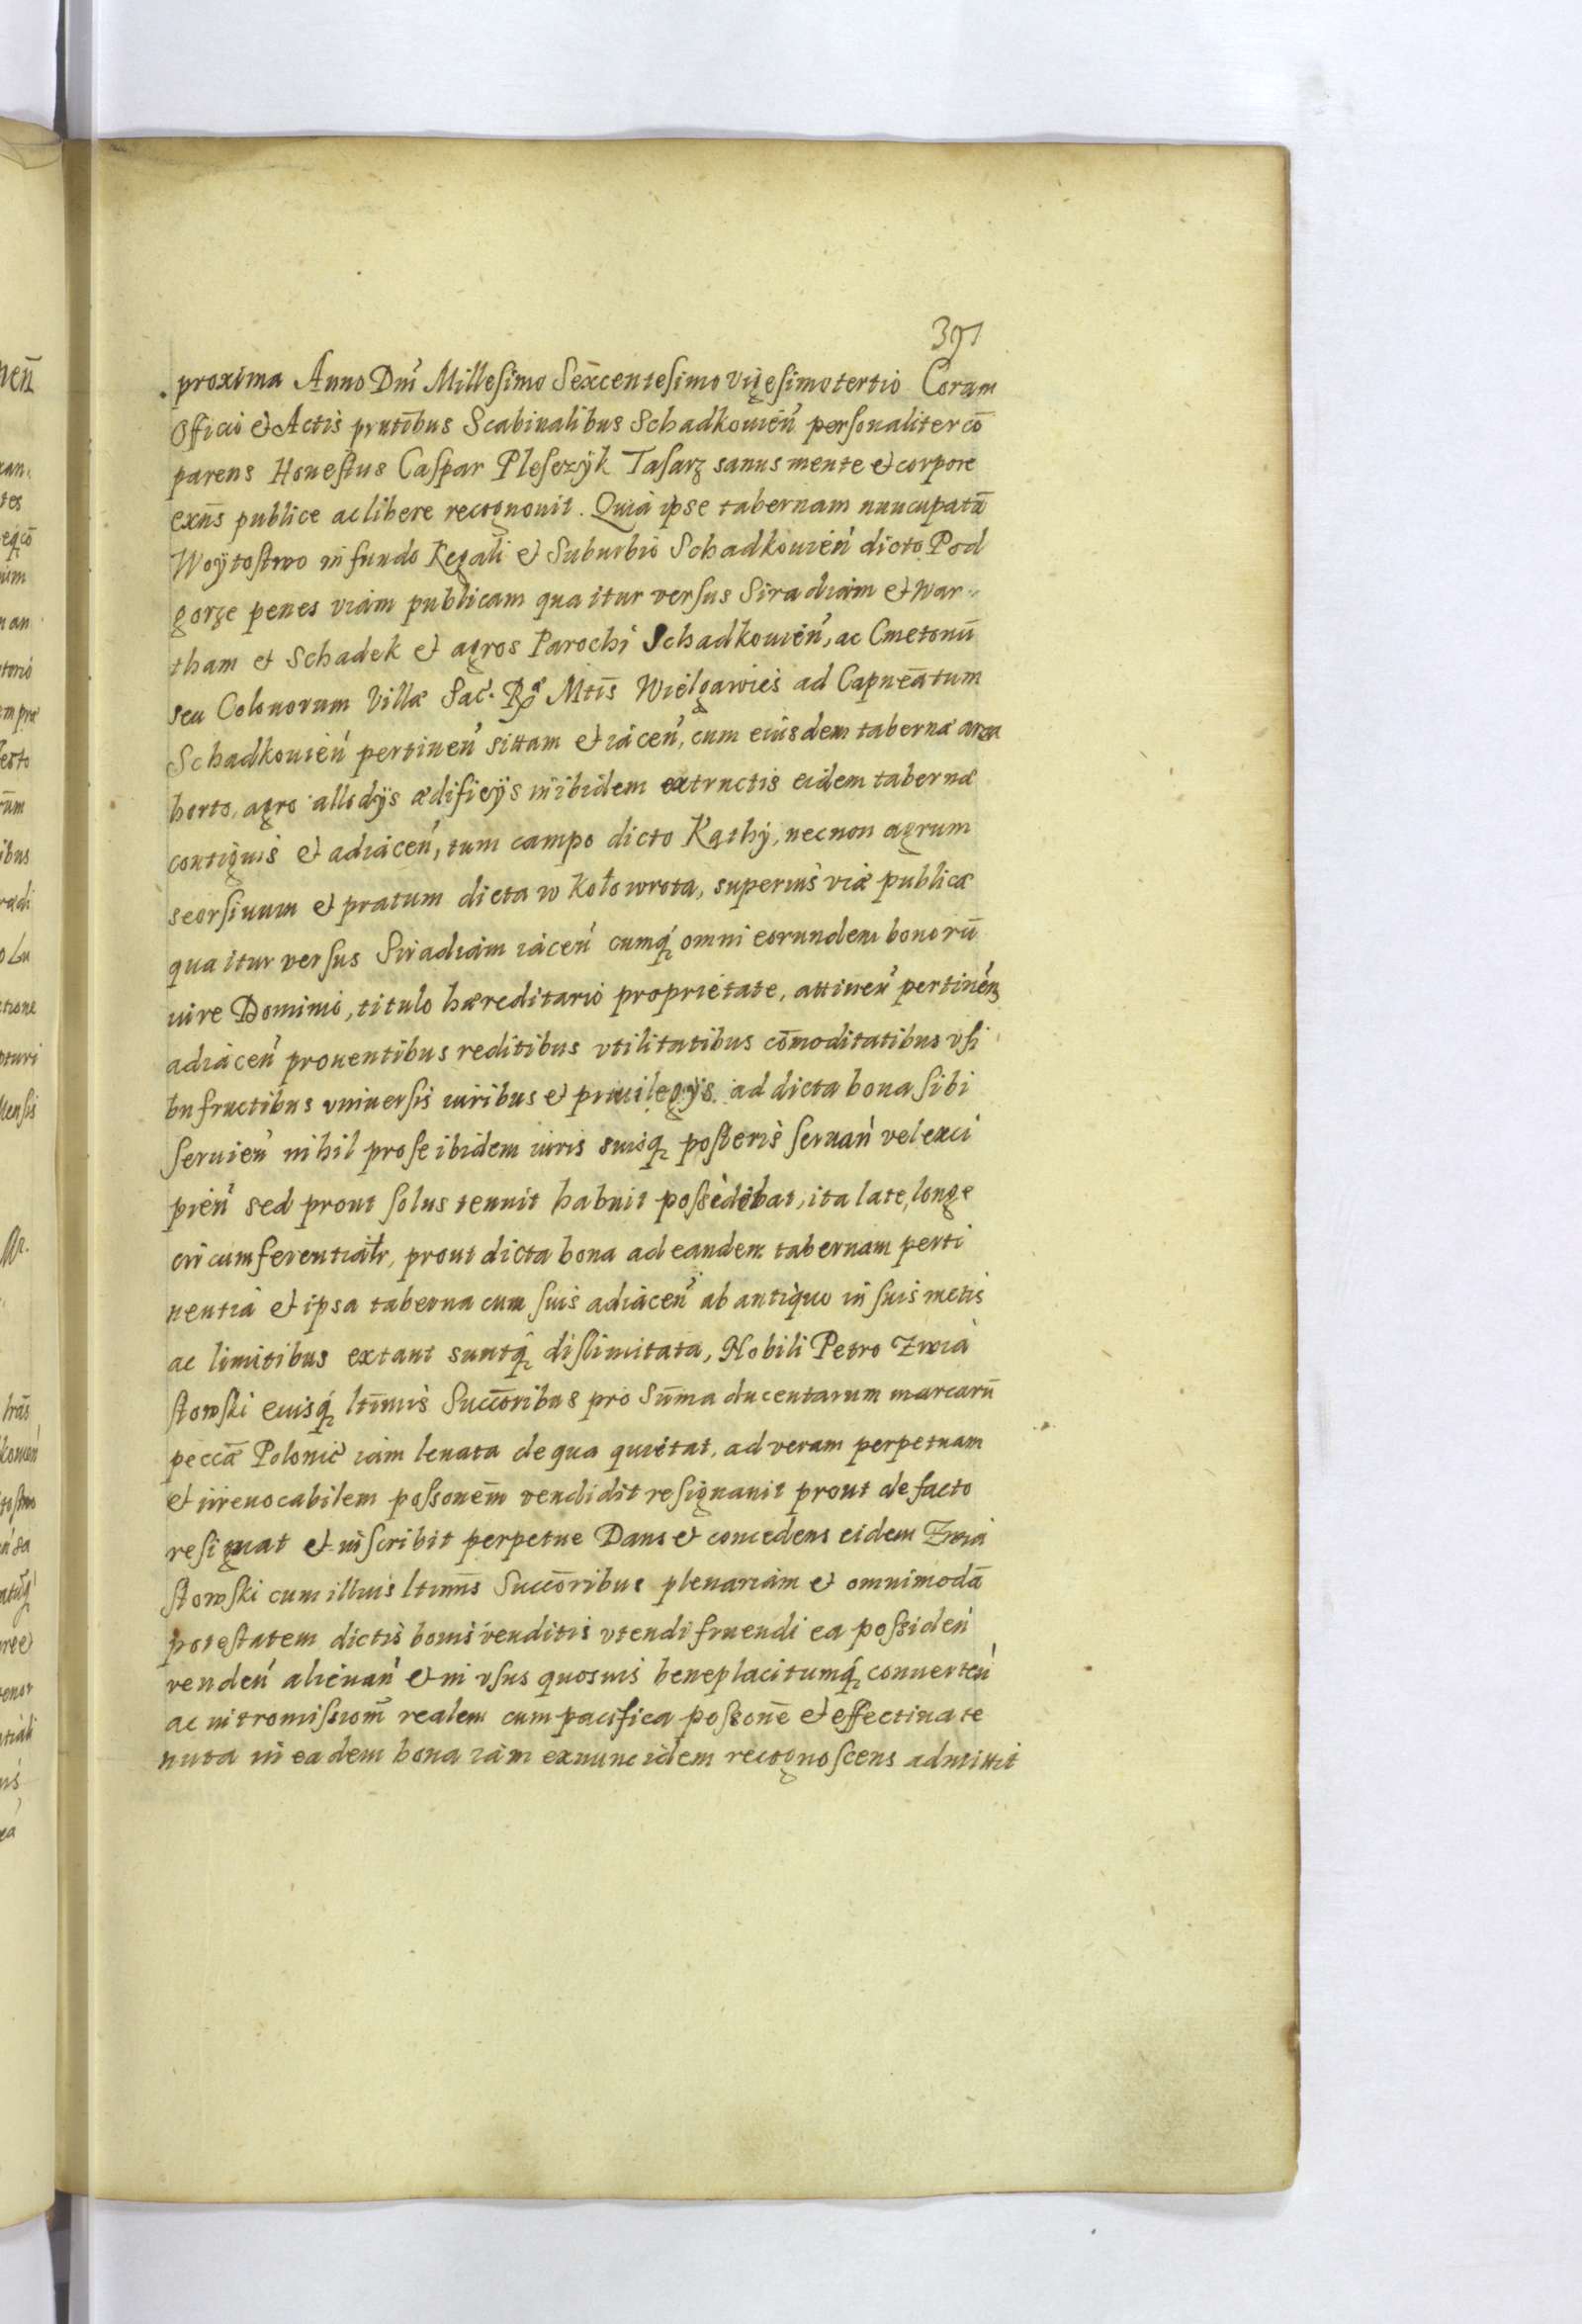 391
proxima Anno Dni Millesimo Sexcentesimo Vigesimotertio Coram
Officio et Actis pntibus Scabinalibus Schadkouien personaliter cō
parens Honestus Caspar Plesczÿk Tasarz sanus mente et corpore
exñs publice ac libere recognouit. Quia ipse tabernam nuncupatā
Woÿtostwo in fundo Regali et Suburbio Schadkouien dicto Pod
gorze penes viam publicam qua itur versus Siradiam et War-
tham et Schadek et agros Parochi Schadkouien, ac Cmetonū
seu Colonorum Villæ Sac. Rꝫ Mtis Wielgawies ad Capneātum
Schadkouien pertinen sittam et iacen, cum eiusdem tabernæ area
horto, agro allodÿs ædificÿs inibidem extructis eidem tabernæ
contiguis et adiacen, tum campo dicto Kąthÿ, necnon agrum
seorsiuum et pratum dicta w Kołowrota, superius viæ publicæ
qua itur versus Siradiam iacen cumq omni eorundem bonorū
iure Dominio, titulo hæreditario proprietate, attinen pertinen
adiacen prouentibus reditibus vtilitatibus cōmoditatibus vsi
bnfructibus vniuersis iuribus et priuilegÿs ad dicta bona sibi
seruien nihil pro se ibidem iuris suisq posteris seruan vel exci
pien sed prout solus tenuit habuit possedebat, ita late, longe
circumferentialr, prout dicta bona ad eandem tabernam perti
nentia et ipsa taberna cum suis adiacen ab antiquo in suis metis
ac limitibus extant suntq dislimitata, Nobili Petro Zwia
stowski eiusq ltimis Succōribus pro Sūma ducentarum marcarū
peccæ Polonic iam leuata de qua quietat, ad veram perpetuam
et irreuocabilem possonem vendidit resignauit prout de facto
resignat et inscribit perpetue Dans et concedens eidem Zwia
stowski cum illius ltimis Succōribus plenariam et omnimodā
potestatem dictis bonis venditis vtendi fruendi ea possiden
venden alienan et in vsus quosuis beneplacitumq conuerten
ac intromissiom realem cum pacifica possone et effectiua te
nuta in eadem bona iam exnunc idem recognoscens admittit